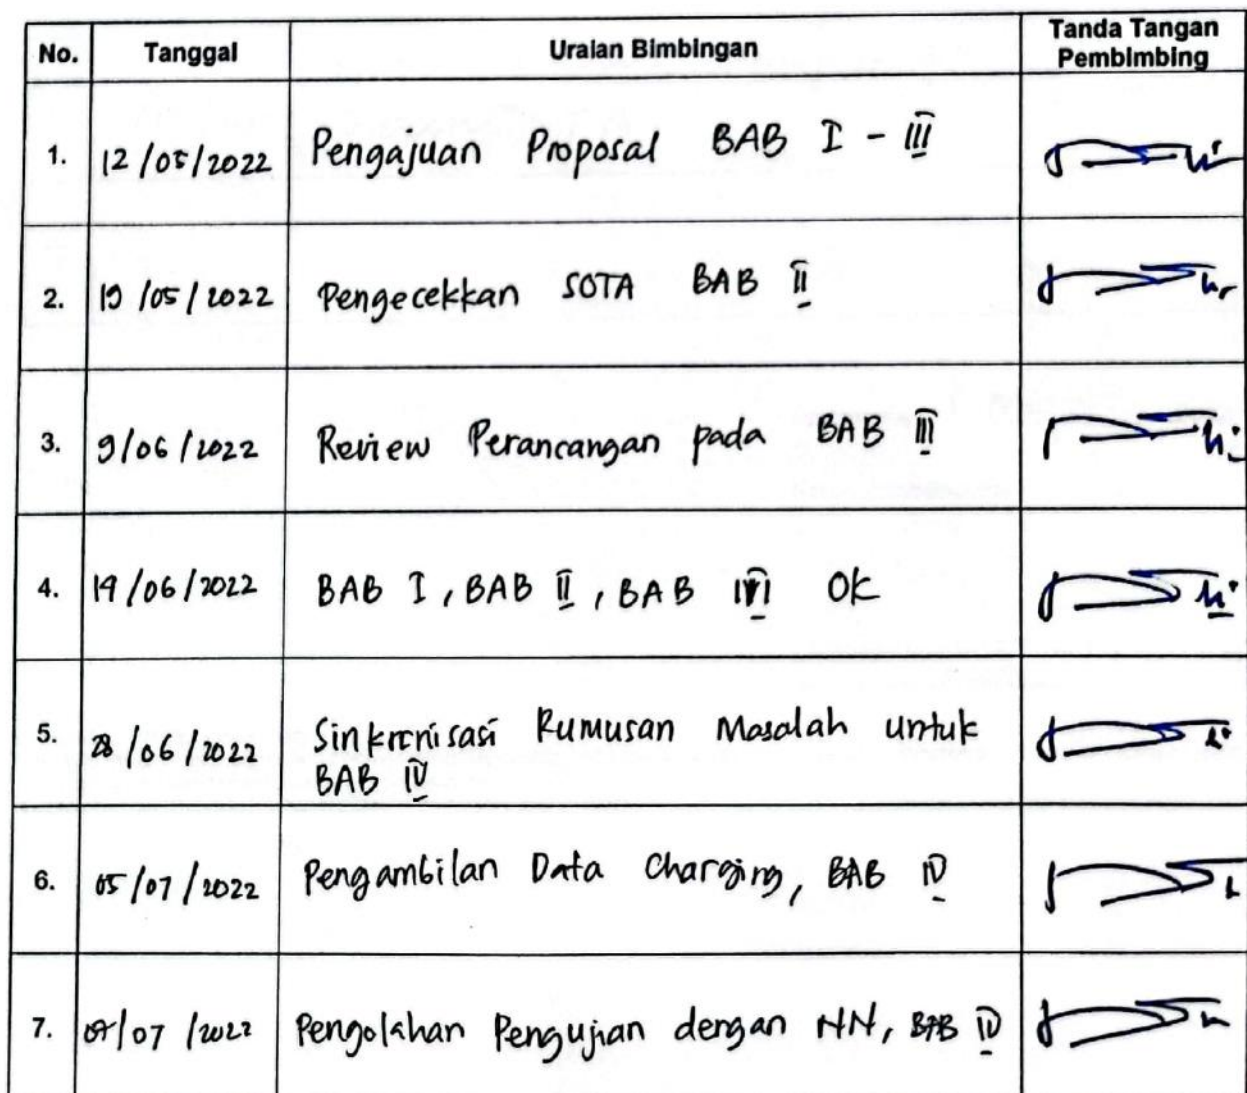 No. Tanggal Uraian Bimbingan Tanda Tangan Pembimbing
1. 12/05/2022 Pengajuan Proposal BAB I - III
2. 19/05/2022 Pengecekkan SOTA BAB II
3. 9/06/2022 Review Perancangan pada BAB III
4. 14/06/2022 BAB I, BAB II, BAB III OK
5. 28/06/2022 Sinkronisasi Rumusan Masalah untuk
BAB IV
6. 05/07/2022 Pengambilan Data Charging, BAB IV
7. /07/2022 Pengolahan Pengujian dengan NN, BAB IV